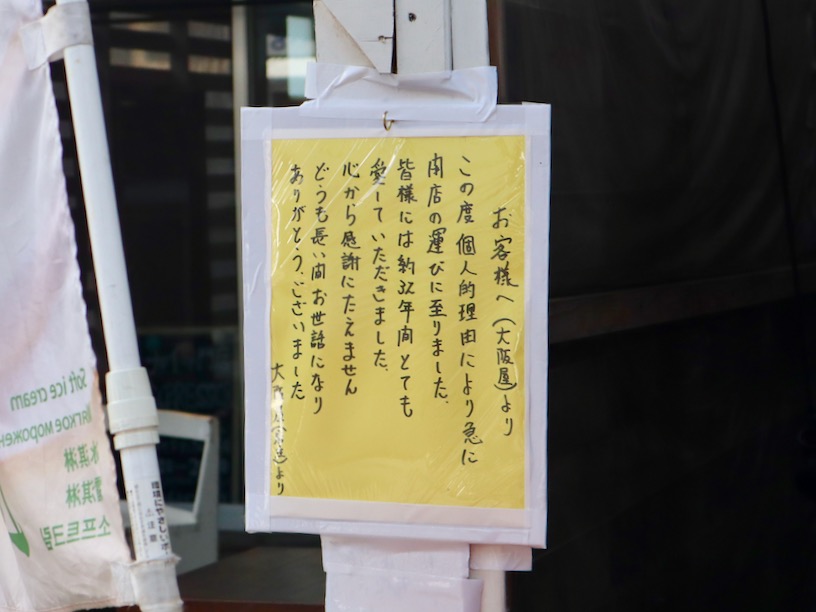 お客様へ(大阪屋)より
この度個人的理由により急に
閉店の運びに至りました。
皆様には約32年間とても
愛していただきました。
心から感謝にたえません
どうも長い間お世話になり
ありがとうございました
大阪屋
より
Soft ice cream
Мягкое морожен
冰淇淋
雪淇淋
소프트크림
環境にやさしい
注意